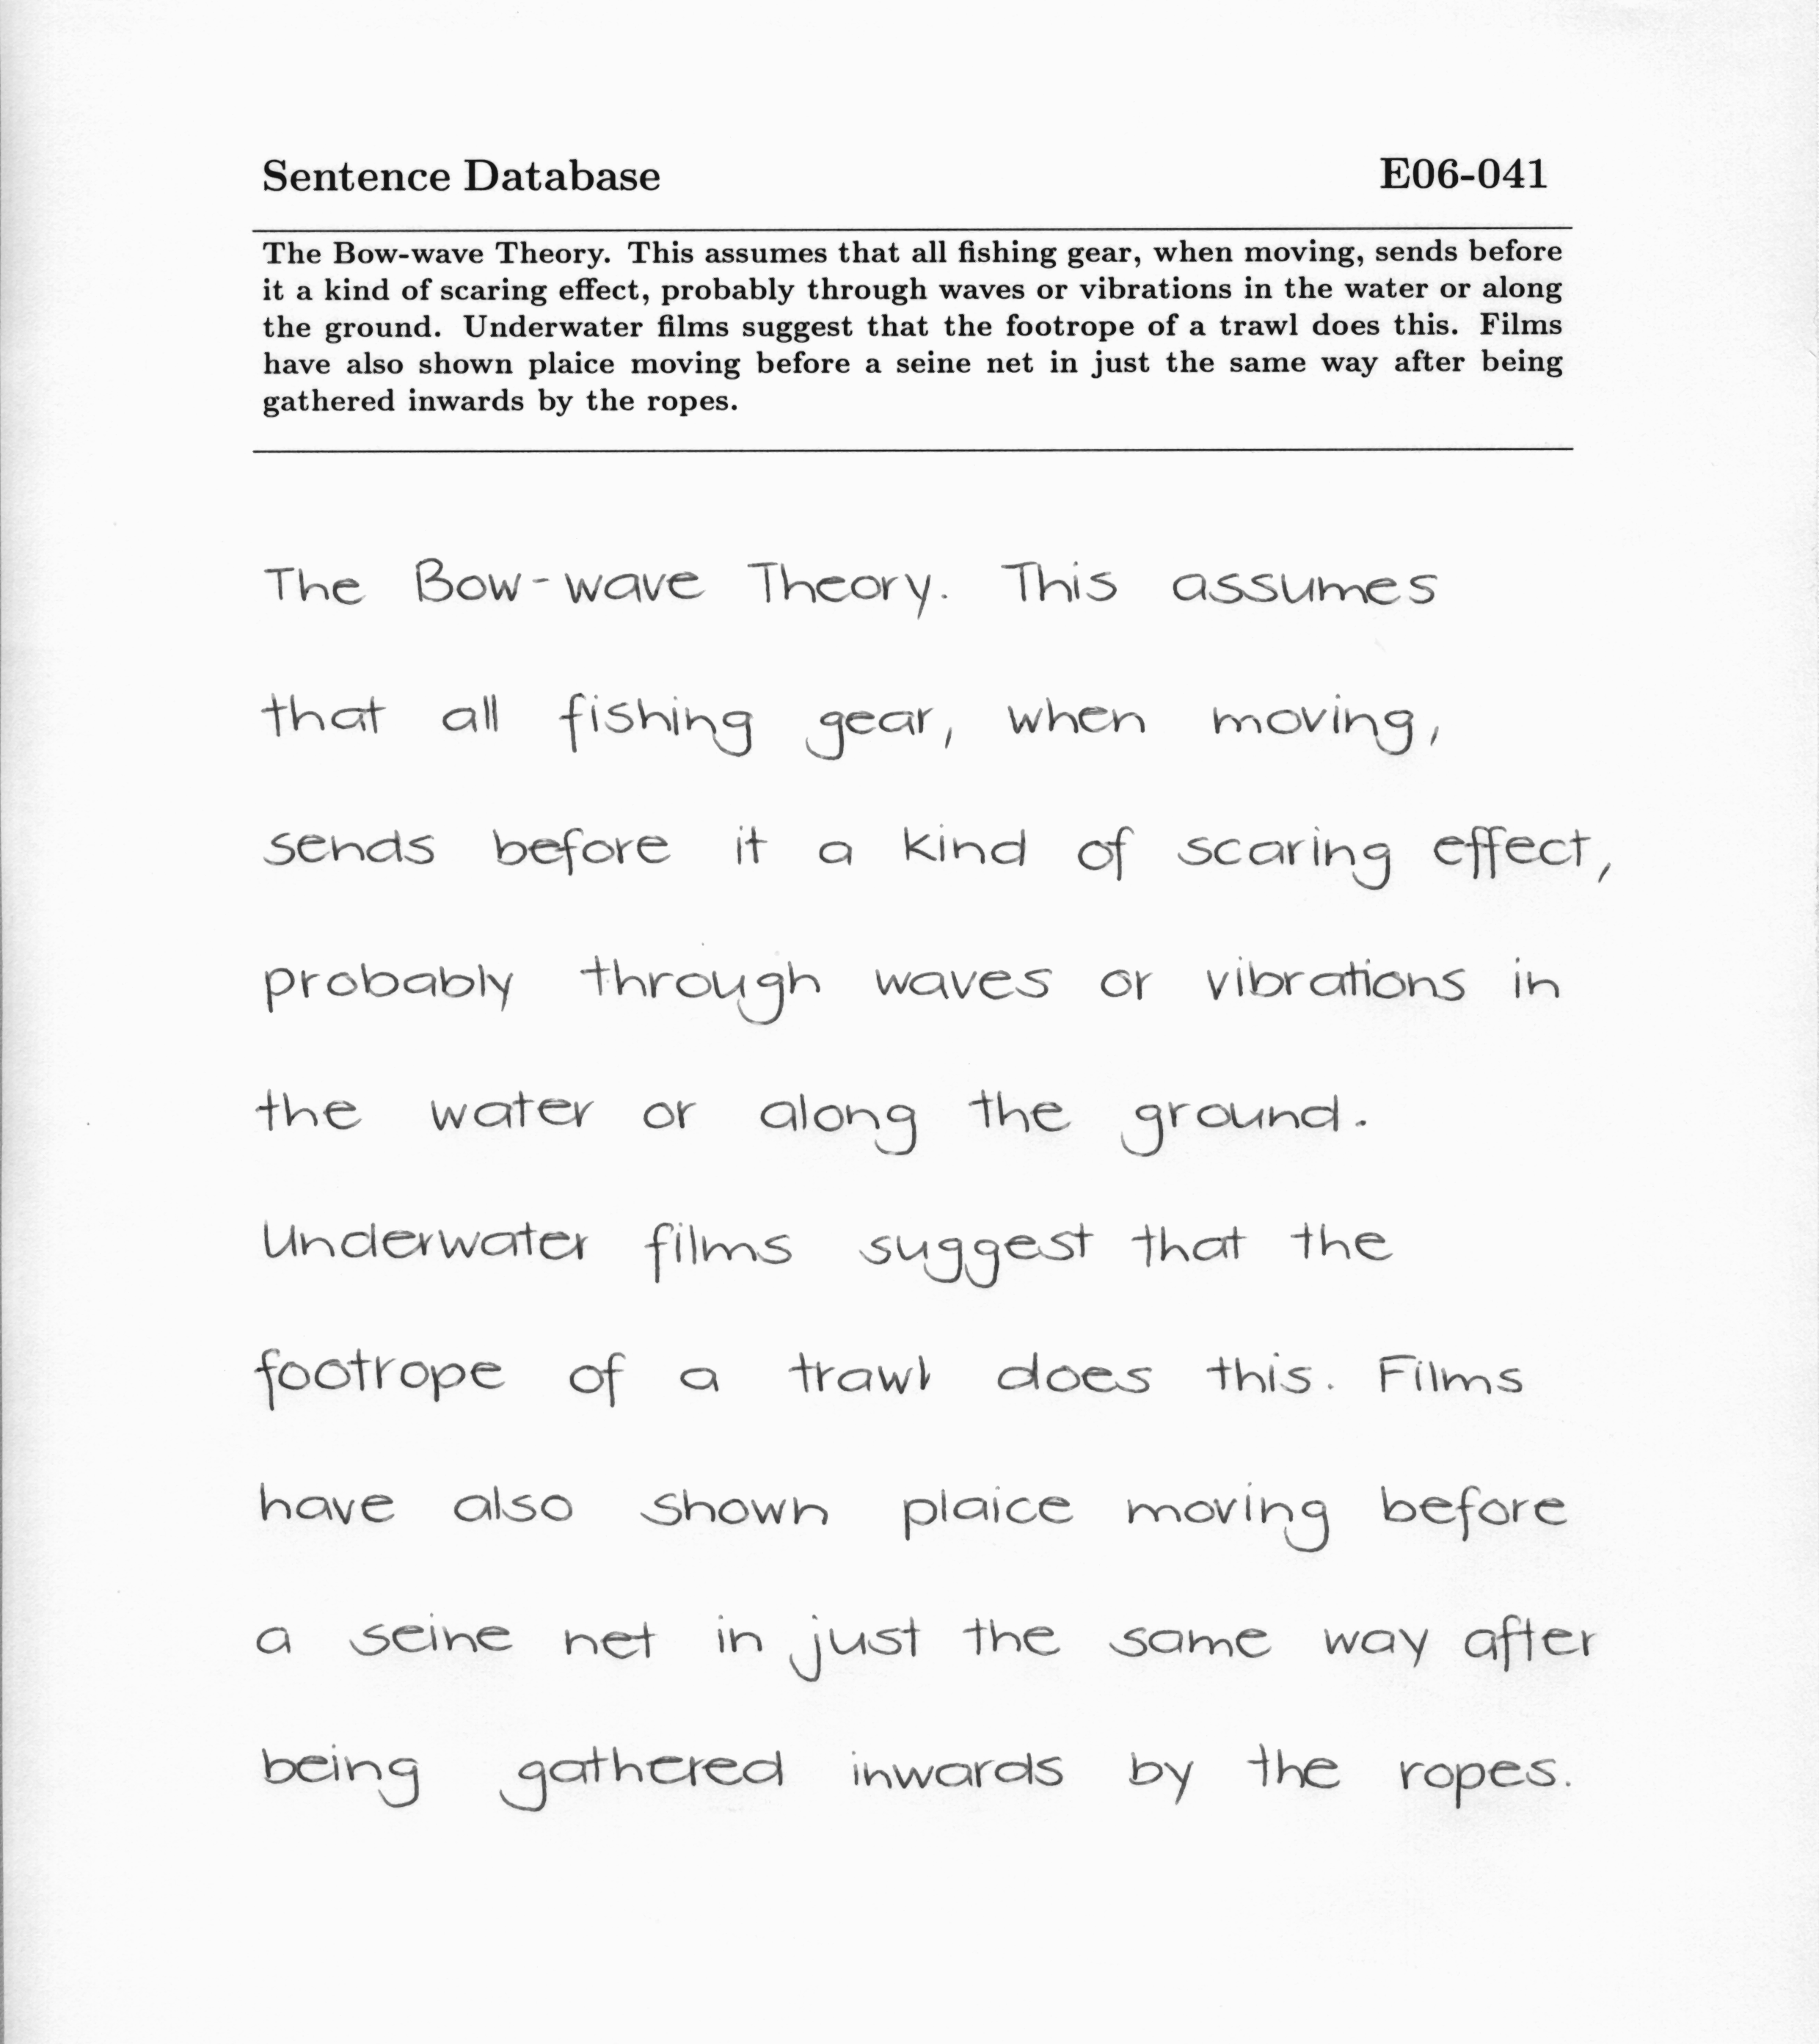 Sentence Database E06-041
The Bow-wave Theory. This assumes that all fishing gear, when moving, sends before
it a kind of scaring effect, probably through waves or vibrations in the water or along
the ground. Underwater films suggest that the footrope of a trawl does this. Films
have also shown plaice moving before a seine net in just the same way after being
gathered inwards by the ropes.
The Bow-wave Theory. This assumes
that all fishing gear, when moving,
sends before it a kind of scaring effect,
probably through waves or vibrations in
the water or along the ground.
Underwater films suggest that the
footrope of a trawl does this. Films
have also shown plaice moving before
a seine net in just the same way after
being gathered inwards by the ropes.